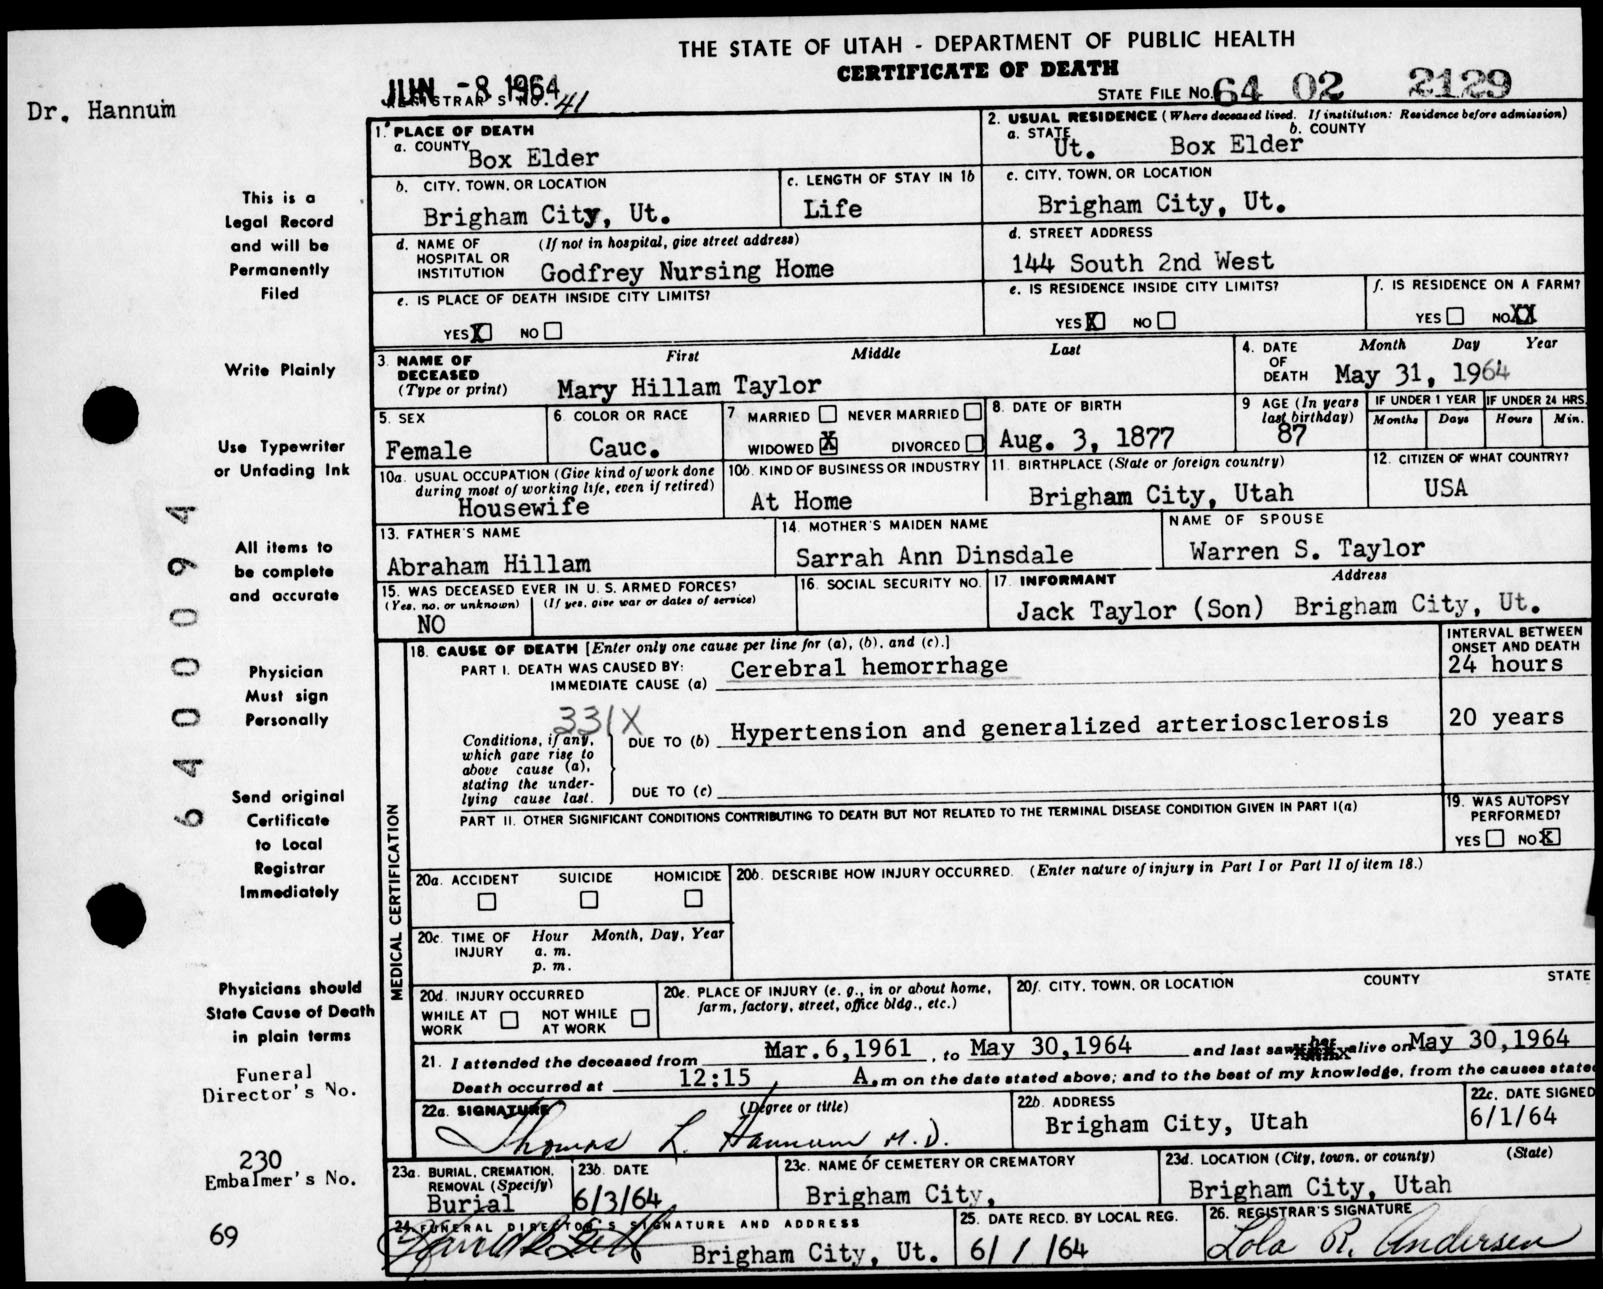 THE STATE OF UTAH - DEPARTMENT OF PUBLIC HEALTH
CERTIFICATE OF DEATH
JUN -8 1964
REGISTRAR'S NO. 41
STATE FILE NO. 64 02 2129
Dr. Hannum
This is a
Legal Record
and will be
Permanently
Filed
Write Plainly
Use Typewriter
or Unfading Ink
All items to
be complete
and accurate
Physician
Must sign
Personally
Send original
Certificate
to Local
Registrar
Immediately
Physicians should
State Cause of Death
in plain terms
Funeral
Director's No.
230
Embalmer's No.
69
6400094
1. PLACE OF DEATH
a. COUNTY
Box Elder
2. USUAL RESIDENCE (Where deceased lived. If institution: Residence before admission)
a. STATE b. COUNTY
Ut. Box Elder
b. CITY, TOWN, OR LOCATION
Brigham City, Ut.
c. LENGTH OF STAY IN 1b
Life
c. CITY, TOWN, OR LOCATION
Brigham City, Ut.
d. NAME OF (If not in hospital, give street address)
HOSPITAL OR
INSTITUTION Godfrey Nursing Home
d. STREET ADDRESS
144 South 2nd West
e. IS PLACE OF DEATH INSIDE CITY LIMITS?
YES X NO
e. IS RESIDENCE INSIDE CITY LIMITS?
YES X NO
f. IS RESIDENCE ON A FARM?
YES NO XX
3. NAME OF First Middle Last
DECEASED
(Type or print) Mary Hillam Taylor
4. DATE Month Day Year
OF
DEATH May 31, 1964
5. SEX
Female
6. COLOR OR RACE
Cauc.
7 MARRIED NEVER MARRIED
WIDOWED X DIVORCED
8. DATE OF BIRTH
Aug. 3, 1877
9 AGE (In years
last birthday)
87
IF UNDER 1 YEAR
Months Days
IF UNDER 24 HRS.
Hours Min.
10a. USUAL OCCUPATION (Give kind of work done
during most of working life, even if retired)
Housewife
10b. KIND OF BUSINESS OR INDUSTRY
At Home
11. BIRTHPLACE (State or foreign country)
Brigham City, Utah
12. CITIZEN OF WHAT COUNTRY?
USA
13. FATHER'S NAME
Abraham Hillam
14. MOTHER'S MAIDEN NAME
Sarrah Ann Dinsdale
NAME OF SPOUSE
Warren S. Taylor
15. WAS DECEASED EVER IN U. S. ARMED FORCES?
(Yes, no, or unknown) (If yes, give war or dates of service)
NO
16. SOCIAL SECURITY NO.
17. INFORMANT Address
Jack Taylor (Son) Brigham City, Ut.
MEDICAL CERTIFICATION
18. CAUSE OF DEATH [Enter only one cause per line for (a), (b), and (c).]
PART I. DEATH WAS CAUSED BY:
IMMEDIATE CAUSE (a) Cerebral hemorrhage
INTERVAL BETWEEN
ONSET AND DEATH
24 hours
331X
Conditions, if any,
which gave rise to
above cause (a),
stating the under-
lying cause last.
DUE TO (b) Hypertension and generalized arteriosclerosis
20 years
DUE TO (c)
PART II. OTHER SIGNIFICANT CONDITIONS CONTRIBUTING TO DEATH BUT NOT RELATED TO THE TERMINAL DISEASE CONDITION GIVEN IN PART I(a)
19. WAS AUTOPSY
PERFORMED?
YES NO X
20a. ACCIDENT SUICIDE HOMICIDE
20b. DESCRIBE HOW INJURY OCCURRED. (Enter nature of injury in Part I or Part II of item 18.)
20c. TIME OF Hour Month, Day, Year
INJURY a. m.
p. m.
20d. INJURY OCCURRED
WHILE AT NOT WHILE
WORK AT WORK
20e. PLACE OF INJURY (e. g., in or about home,
farm, factory, street, office bldg., etc.)
20f. CITY, TOWN, OR LOCATION COUNTY STATE
21. I attended the deceased from Mar. 6,1961, to May 30,1964 and last saw her alive on May 30,1964
Death occurred at 12:15, A.m on the date stated above; and to the best of my knowledge, from the causes state
22a. SIGNATURE (Degree or title)
Thomas L. Hannum M.D.
22b. ADDRESS
Brigham City, Utah
22c. DATE SIGNED
6/1/64
23a. BURIAL, CREMATION,
REMOVAL (Specify)
Burial
23b. DATE
6/3/64
23c. NAME OF CEMETERY OR CREMATORY
Brigham City,
23d. LOCATION (City, town, or county) (State)
Brigham City, Utah
24. FUNERAL DIRECTOR'S SIGNATURE AND ADDRESS
Brigham City, Ut.
25. DATE RECD. BY LOCAL REG.
6/1/64
26. REGISTRAR'S SIGNATURE
Lola R. Andersen